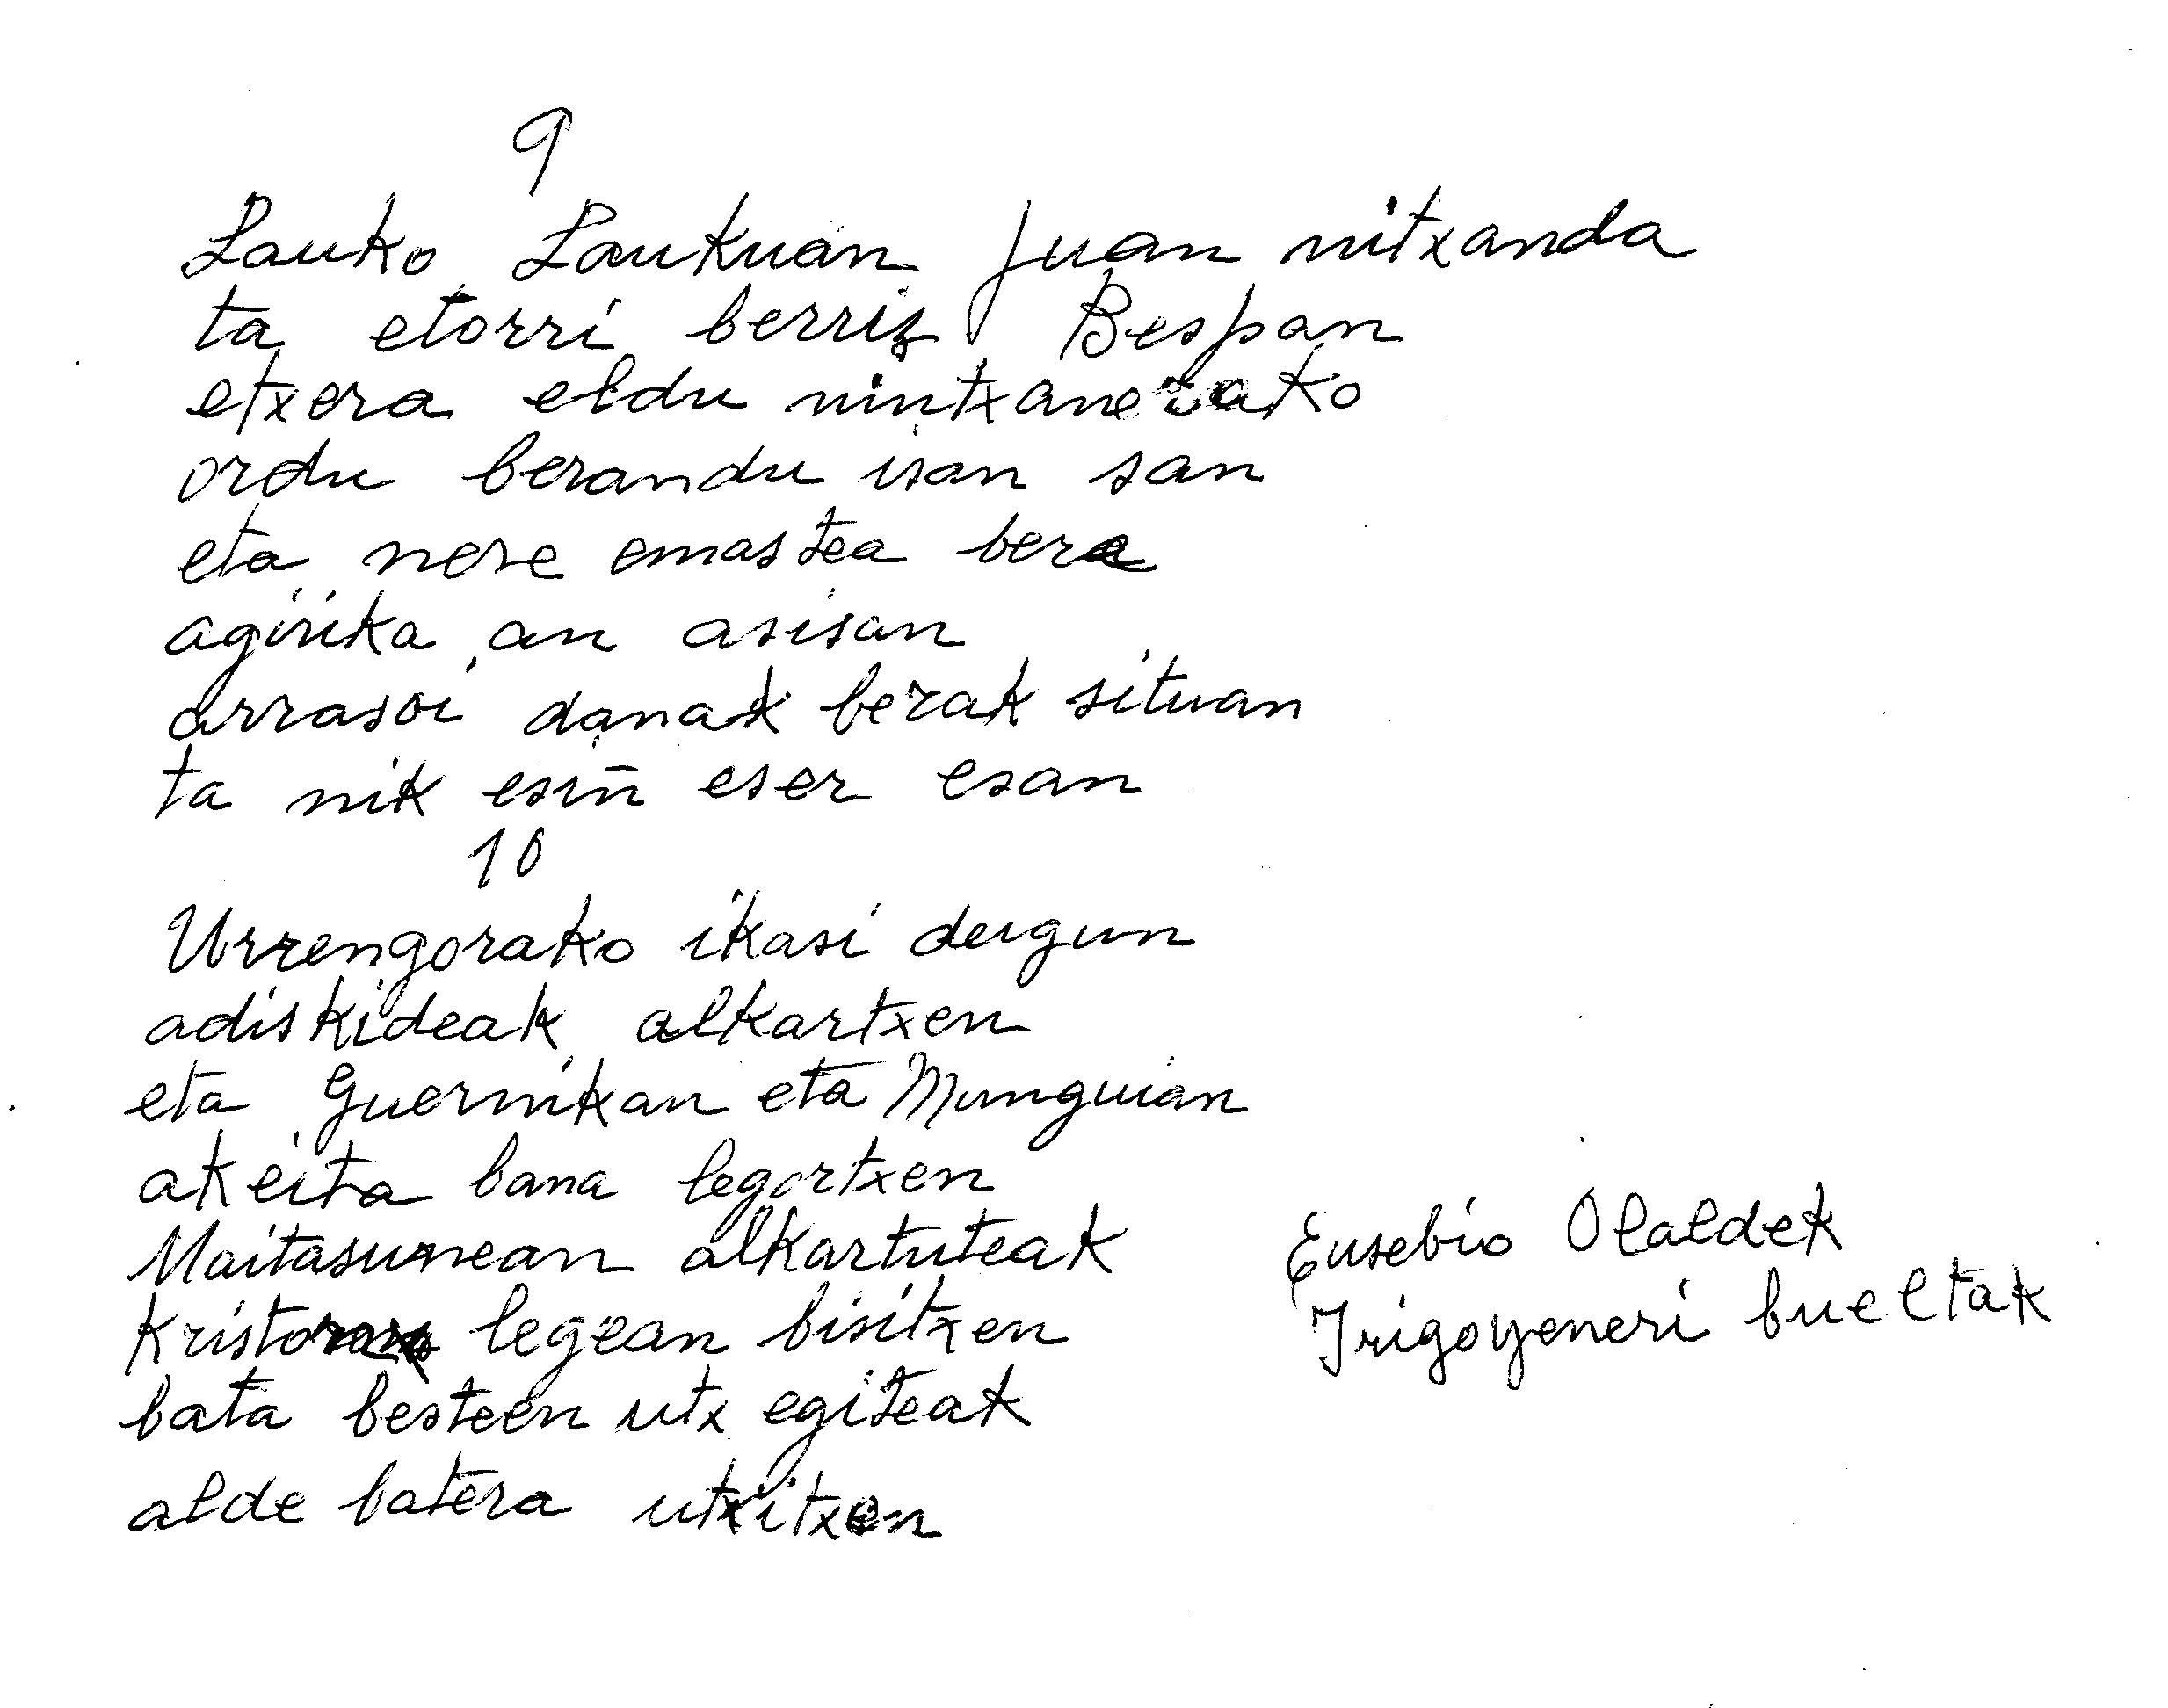 9
Lauko Laukuan Juan nitxanda
ta etorri berriz Bespan
etxera eldu nintxanerako
ordu berandu isan san
eta nere emastea bera
agirika an asisan
arrasoi danak berak situan
ta nik esiñ eser esan
10
Urrengorako ikasi deigun
adiskideak alkartxen
eta Guernikan eta Munguian
akeita bana legortxen
Maitasunean alkartuteak
Kristoren legean bisitxen
bata besteen utx egiteak
alde batera utxitxen
Eusebio Olaldek
Irigoyeneri bueltak